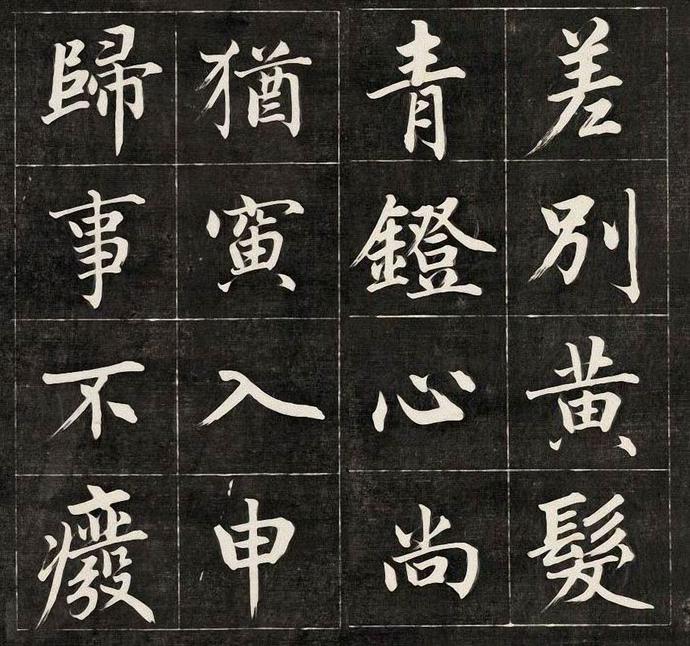 差別黄髮
青鐙心尚
猶寅入申
歸事不癈